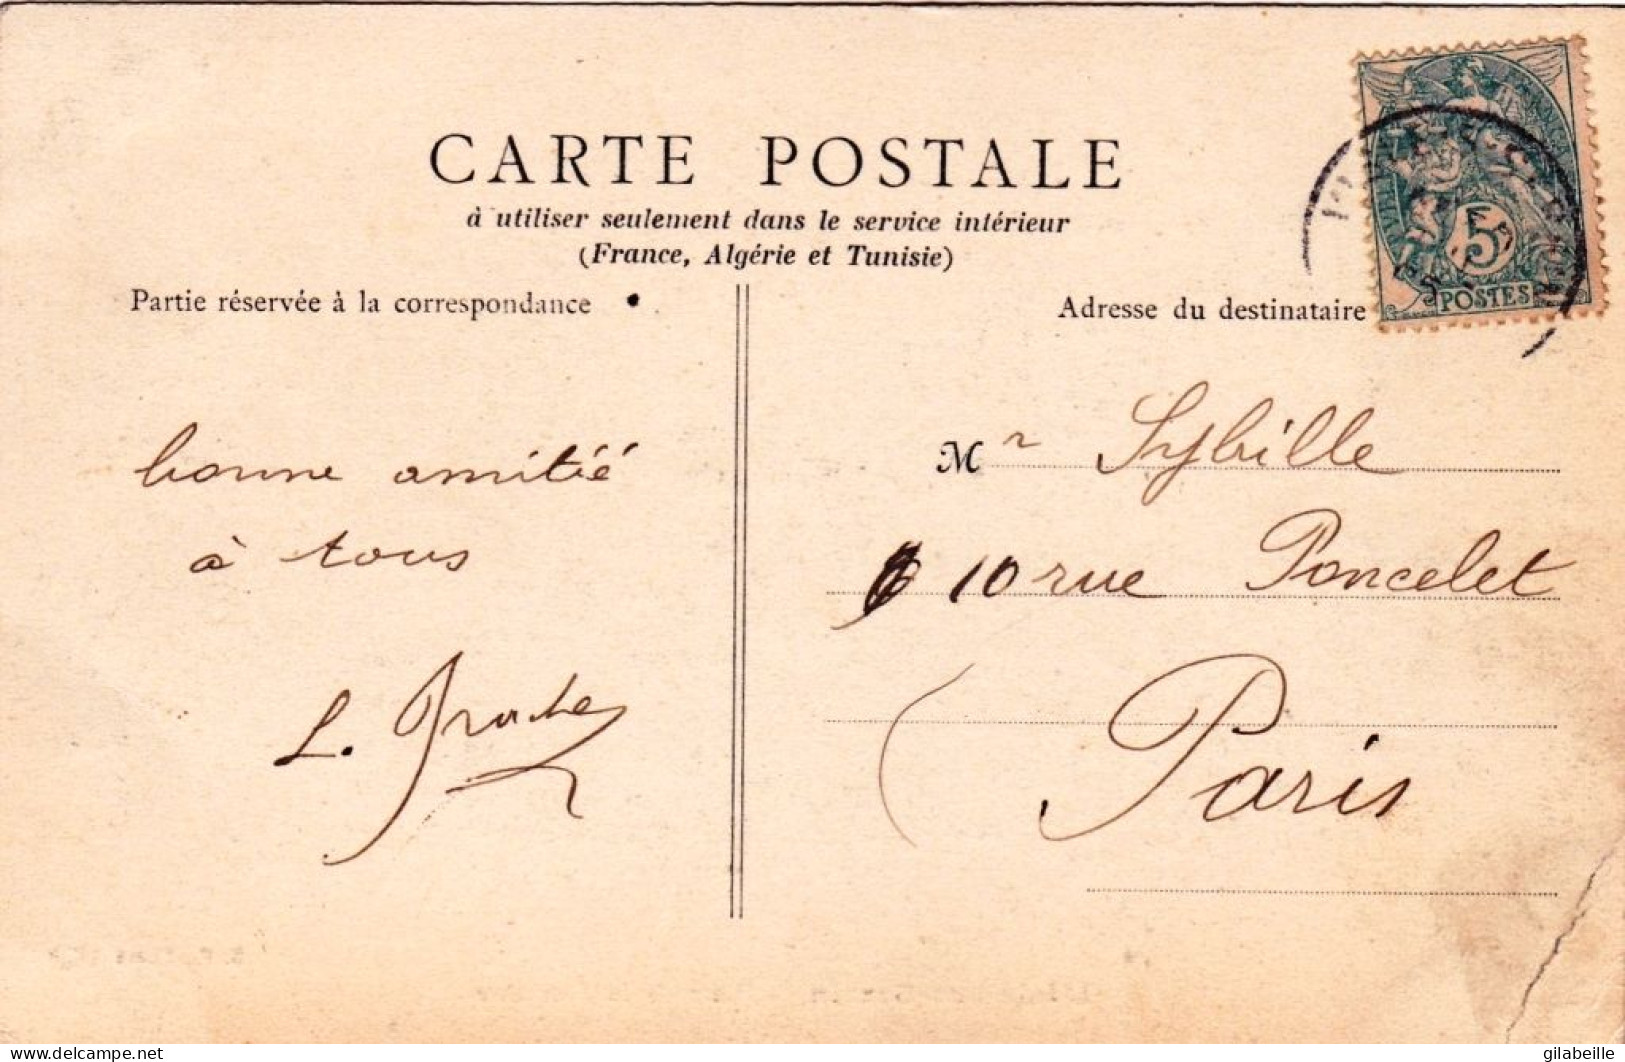 CARTE POSTALE
à utiliser seulement dans le service intérieur
(France, Algérie et Tunisie)
Partie réservée à la correspondance
Adresse du destinataire
5
POSTES
bonne amitié
à tous
L.
Mr Sybille
10 rue Poncelet
Paris
delcampe.net
gilabeille